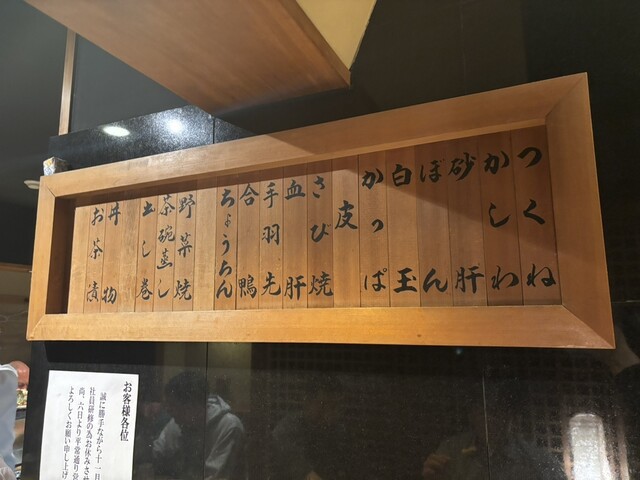 つくね
かしわ
砂肝
ぼん
白玉
かっぱ
皮
さび焼
血肝
手羽先
合鴨
ちょうちん
野菜焼
茶碗蒸し
出し巻
丼物
お茶漬
お客様各位
誠に勝手ながら十一月
社員研修の為お休みさせ
尚、六日より平常通り営
よろしくお願い申し上げ